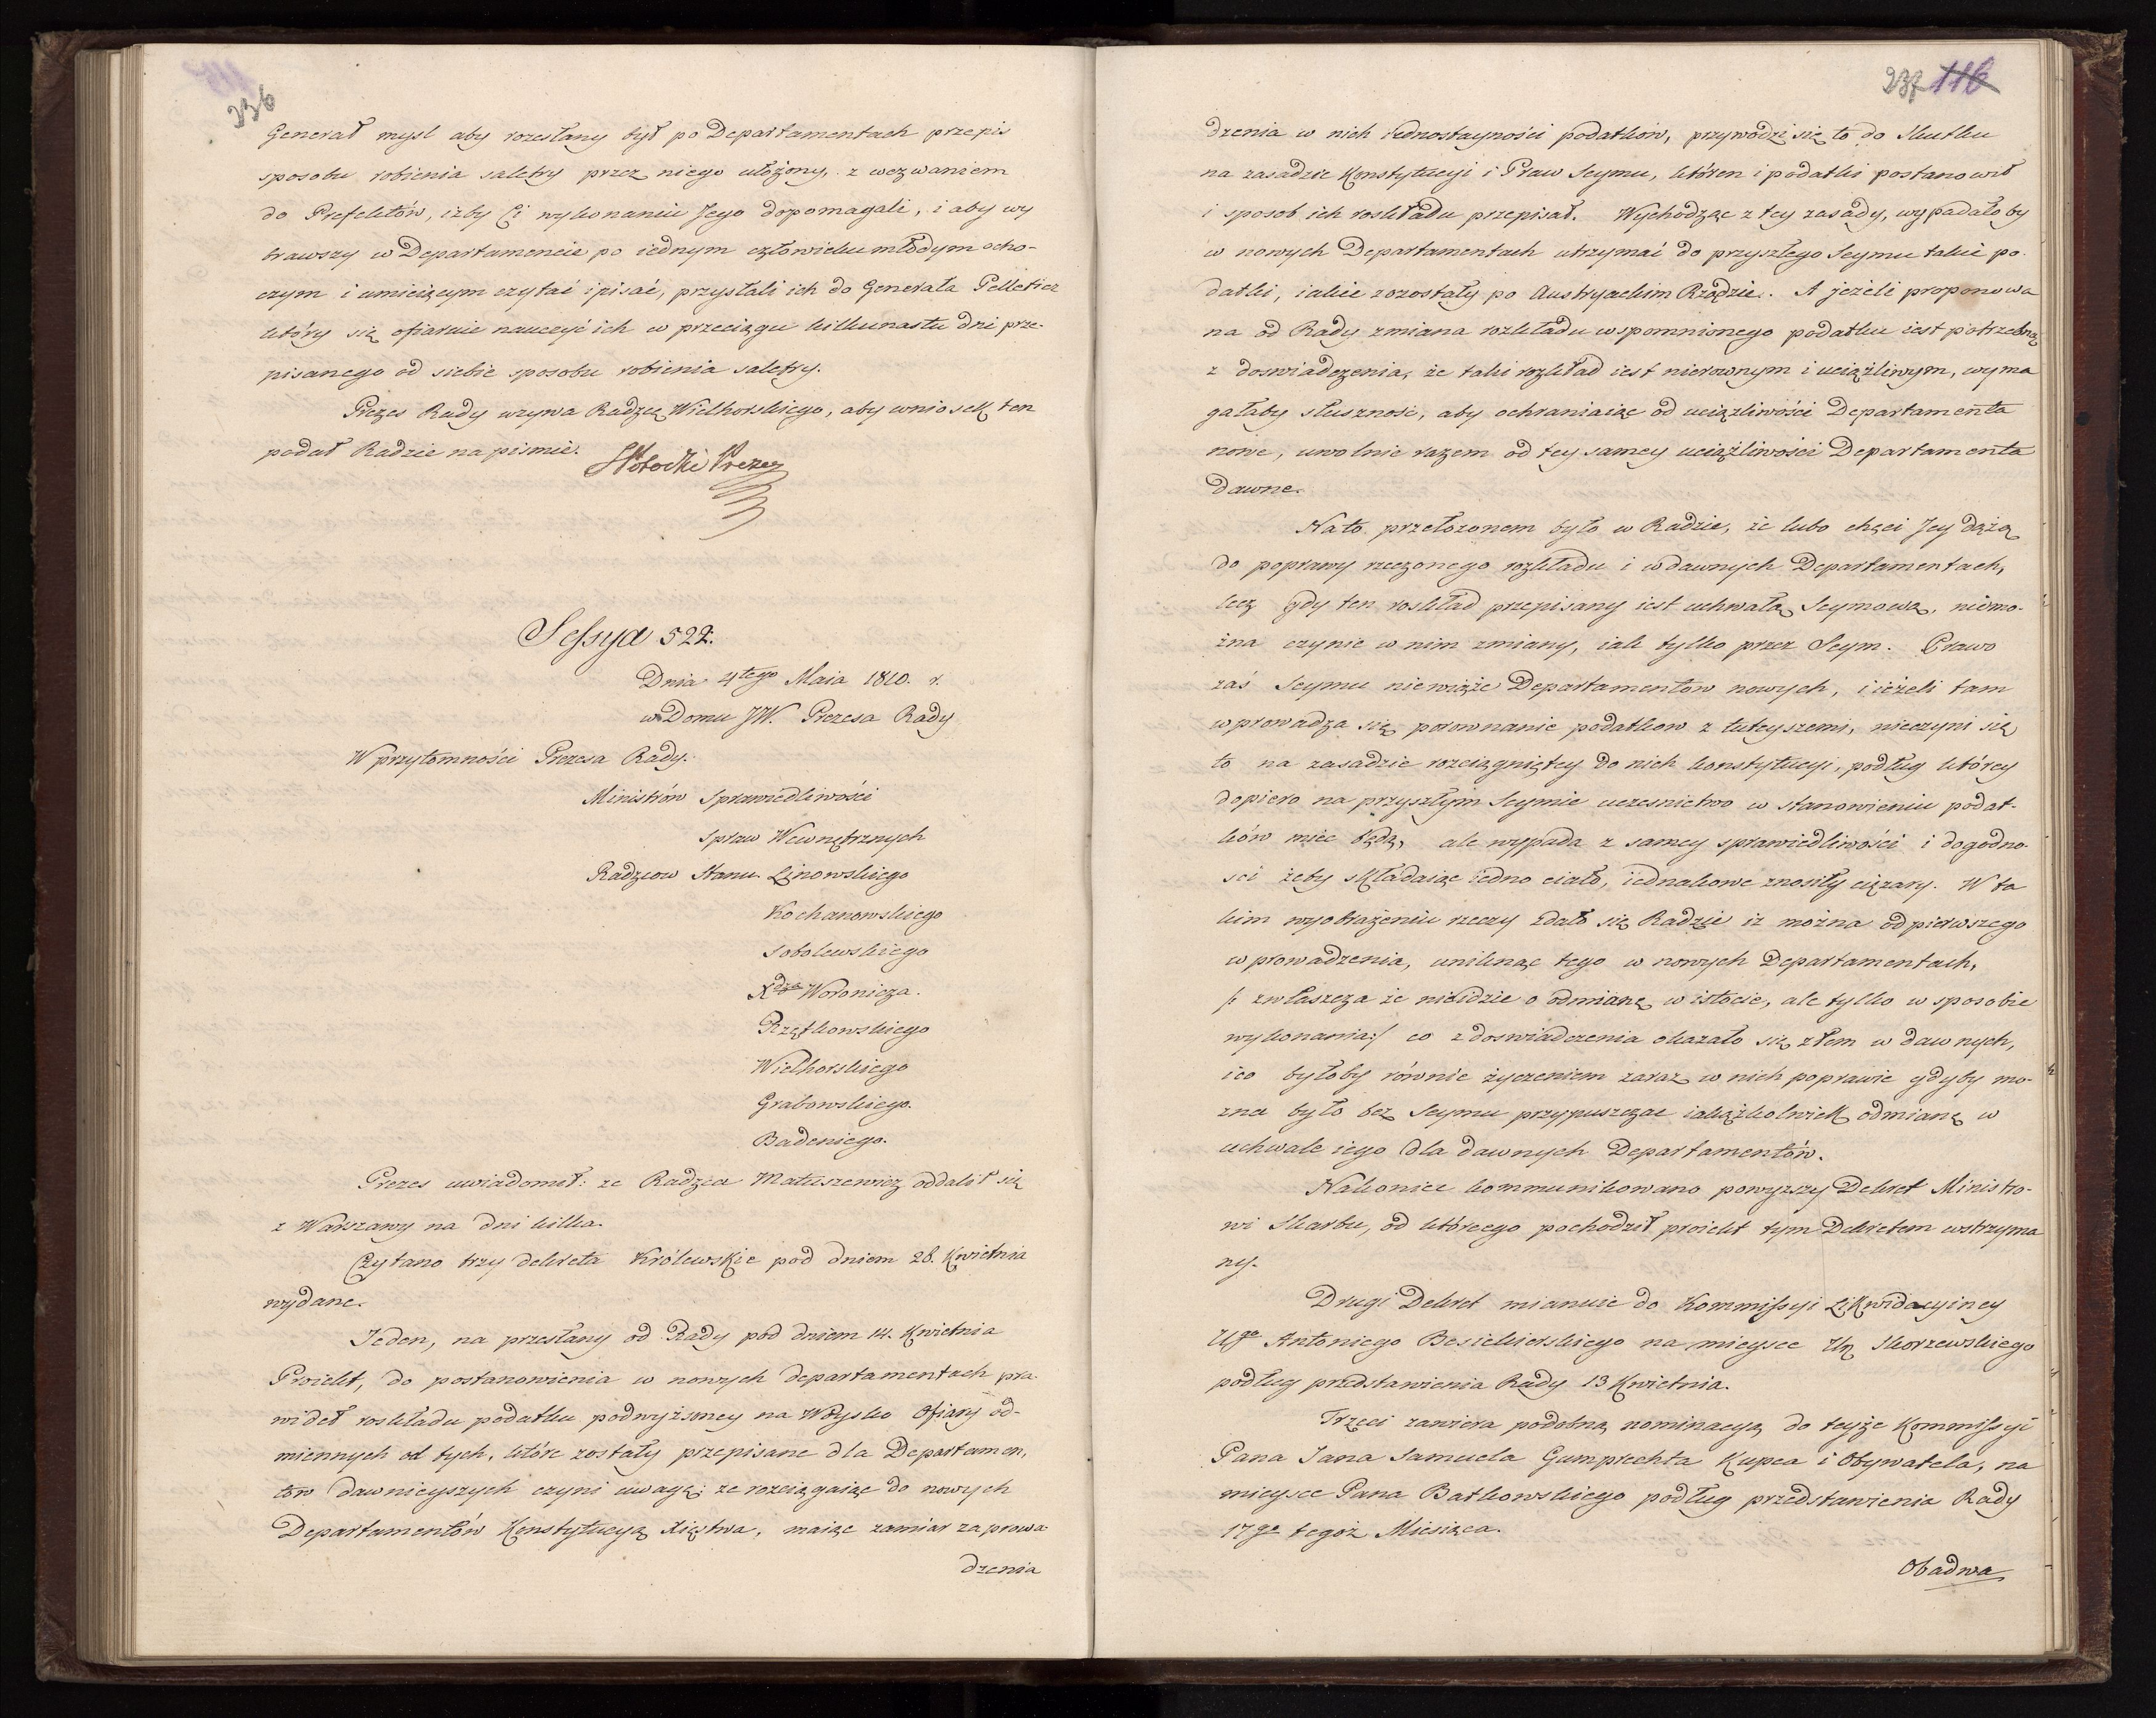 236
Generał mysl aby rozesłany był po Departamentach przepis
sposobu robienia saletry przez niego ułożony, z wezwaniem
do Prefektów, iżby Ci wykonaniu Jego dopomagali, i aby wy
brawszy w Departamencie po iednym człowieku młodym ocho-
czym i umieiącym czytać i pisać, przysłali ich do Generała Pelletier
który się ofiaruie nauczyć ich w przeciągu kilkunastu dni prze-
pisanego od siebie sposobu robienia saletry.
Prezes Rady wzywa Radzcę Wielhorskiego, aby wniosek ten
podał Radzie na pismie.
SPotocki Prezes
Sessya 522.
Dnia 4tego Maia 1810. r.
w Domu JW. Prezesa Rady
W przytomności Prezesa Rady.
Ministrów Sprawiedliwości
Spraw Wewnętrznych
Radzcow Stanu Linowskiego
Kochanowskiego
Sobolewskiego
Xdza Woronicza.
Rzętkowskiego
Wielhorskiego
Grabowskiego.
Badeniego.
Prezes uwiadomił: ze Radzca Matuszewicz oddalił się
z Warszawy na dni kilka.
Czytano trzy dekreta Królewskie pod dniem 28. Kwietnia
wydane.
Jeden, na przesłany od Rady pod dniem 14. Kwietnia
Proiekt, do postanowienia w nowych departamentach pra-
wideł roskładu podatku podwyższoney na Woysko Ofiary od-
miennych od tych, które zostały przepisane dla Departamen,
tow dawnieyszych czyni uwagę: ze rozciągaiąc do nowych
Departamentów Konstytucyą Xięstwa, maiąc zamiar zaprowa
dzenia
237 116
dzenia w nich iednostayności podatków, przywodzi się to do skutku
na zasadzie Konstytucyi i Praw Seymu, któren i podatki postanowił
i sposob ich roskładu przepisał. Wychodząc z tey zasady, wypadałoby
w nowych Departamentach utrzymać do przyszłego Seymu takie po-
datki, iakie zozostały po Austryackim Rządzie. A jeżeli proponowa
na od Rady zmiana rozkładu wspomnionego podatku iest potrzebną
z doswiadczenia, że taki rozkład iest nierownym i uciążliwym, wyma
gałaby słuszność, aby ochraniaiąc od uciążliwości Departamenta
nowe, uwolnic razem od tey samey uciążliwości Departamenta
dawne.
Na to przełozonem było w Radzie, że lubo chęci Jey dążą
do poprawy rzeczonego rozkładu i w dawnych Departamentach,
lecz gdy ten roskład przepisany iest uchwałą Seymową, niemo-
żna czynic w nim zmiany, iak tylko przez Seym. Prawo
zaś Seymu niewiąże Departamentow nowych, i ieżeli tam
wprowadza się porownanie podatkow z tuteyszemi, nieczyni się
to na zasadzie rozciągniętey do nich konstytucyi, podług którey
dopiero na przyszłym Seymie uczesnictwo w stanowieniu podat-
ków mieć będą, ale wypada z samey sprawiedliwości i dogodno-
sci żeby składaiąc iedno ciało, iednakowe znosiły ciężary. W ta
kim wyobrażeniu rzeczy zdało się Radzie iz można od pierwszego
wprowadzenia, uniknąc tego w nowych Departamentach,
/: zwłaszcza że nieidzie o odmianę w istocie, ale tylko w sposobie
wykonania:/ co z doswiadczenia okazało się złem w dawnych,
i co byłoby równie życzeniem zaraz w nich poprawic gdyby mo-
zna było bez Seymu przypuszczac iakążkolwiek odmianę w
uchwale iego dla dawnych Departamentów.
Nakoniec kommunikowano powyższy Dekret Ministro-
wi Skarbu, od którego pochodził proiekt tym Dekretem wstrzyma
ny.
Drugi Dekret mianuie do Kommissyi Likwidacyiney
Ugo Antoniego Besiekierskiego na mieysce Ur. Skorzewskiego
podług przedstawienia Rady 13 Kwietnia.
Trzeci zawiera podobną nominacyą do teyże Kommissyi
Pana Jana Samuela Gumprechta Kupca i Obywatela, na
mieysce Pana Batkowskiego podług przedstawienia Rady
17go tegoż Miesiąca.
Obadwa